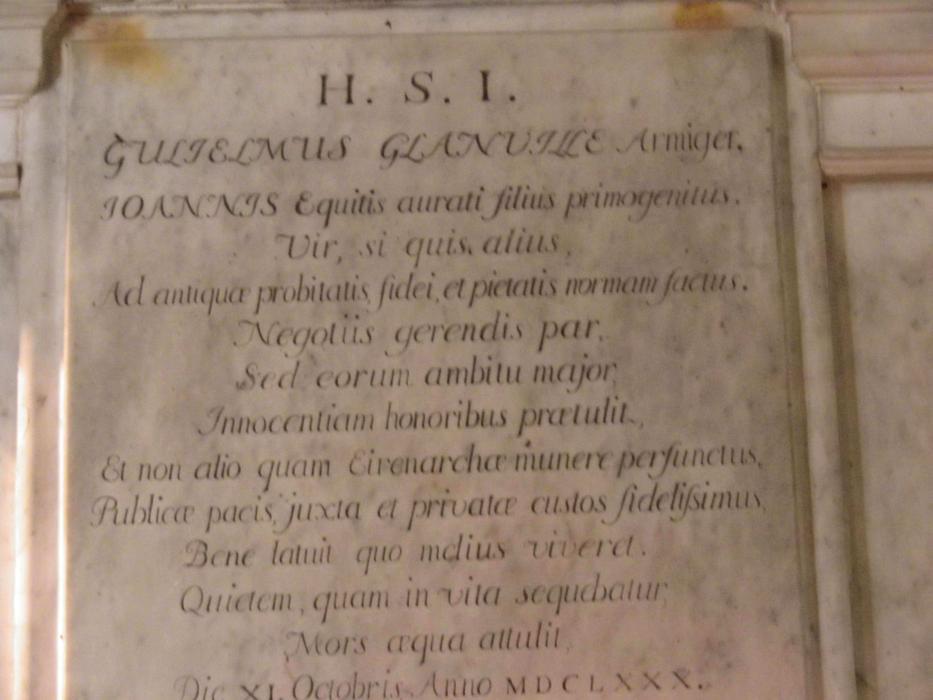 H. S. I.
GULIELMUS GLANVILLE Armiger,
IOANNIS Equitis aurati filius primogenitus.
Vir, si quis alius,
Ad antiquæ probitatis, fidei, et pietatis normam factus.
Negotiis gerendis par,
Sed eorum ambitu major,
Innocentiam honoribus prætulit,
Et non alio quam Eirenarchæ munere perfunctus,
Publicæ pacis, juxta et privatæ custos fidelissimus,
Bene latuit quo melius viveret.
Quietem, quam in vita sequebatur,
Mors æqua attulit,
Die XI. Octobris. Anno MDCLXXX.